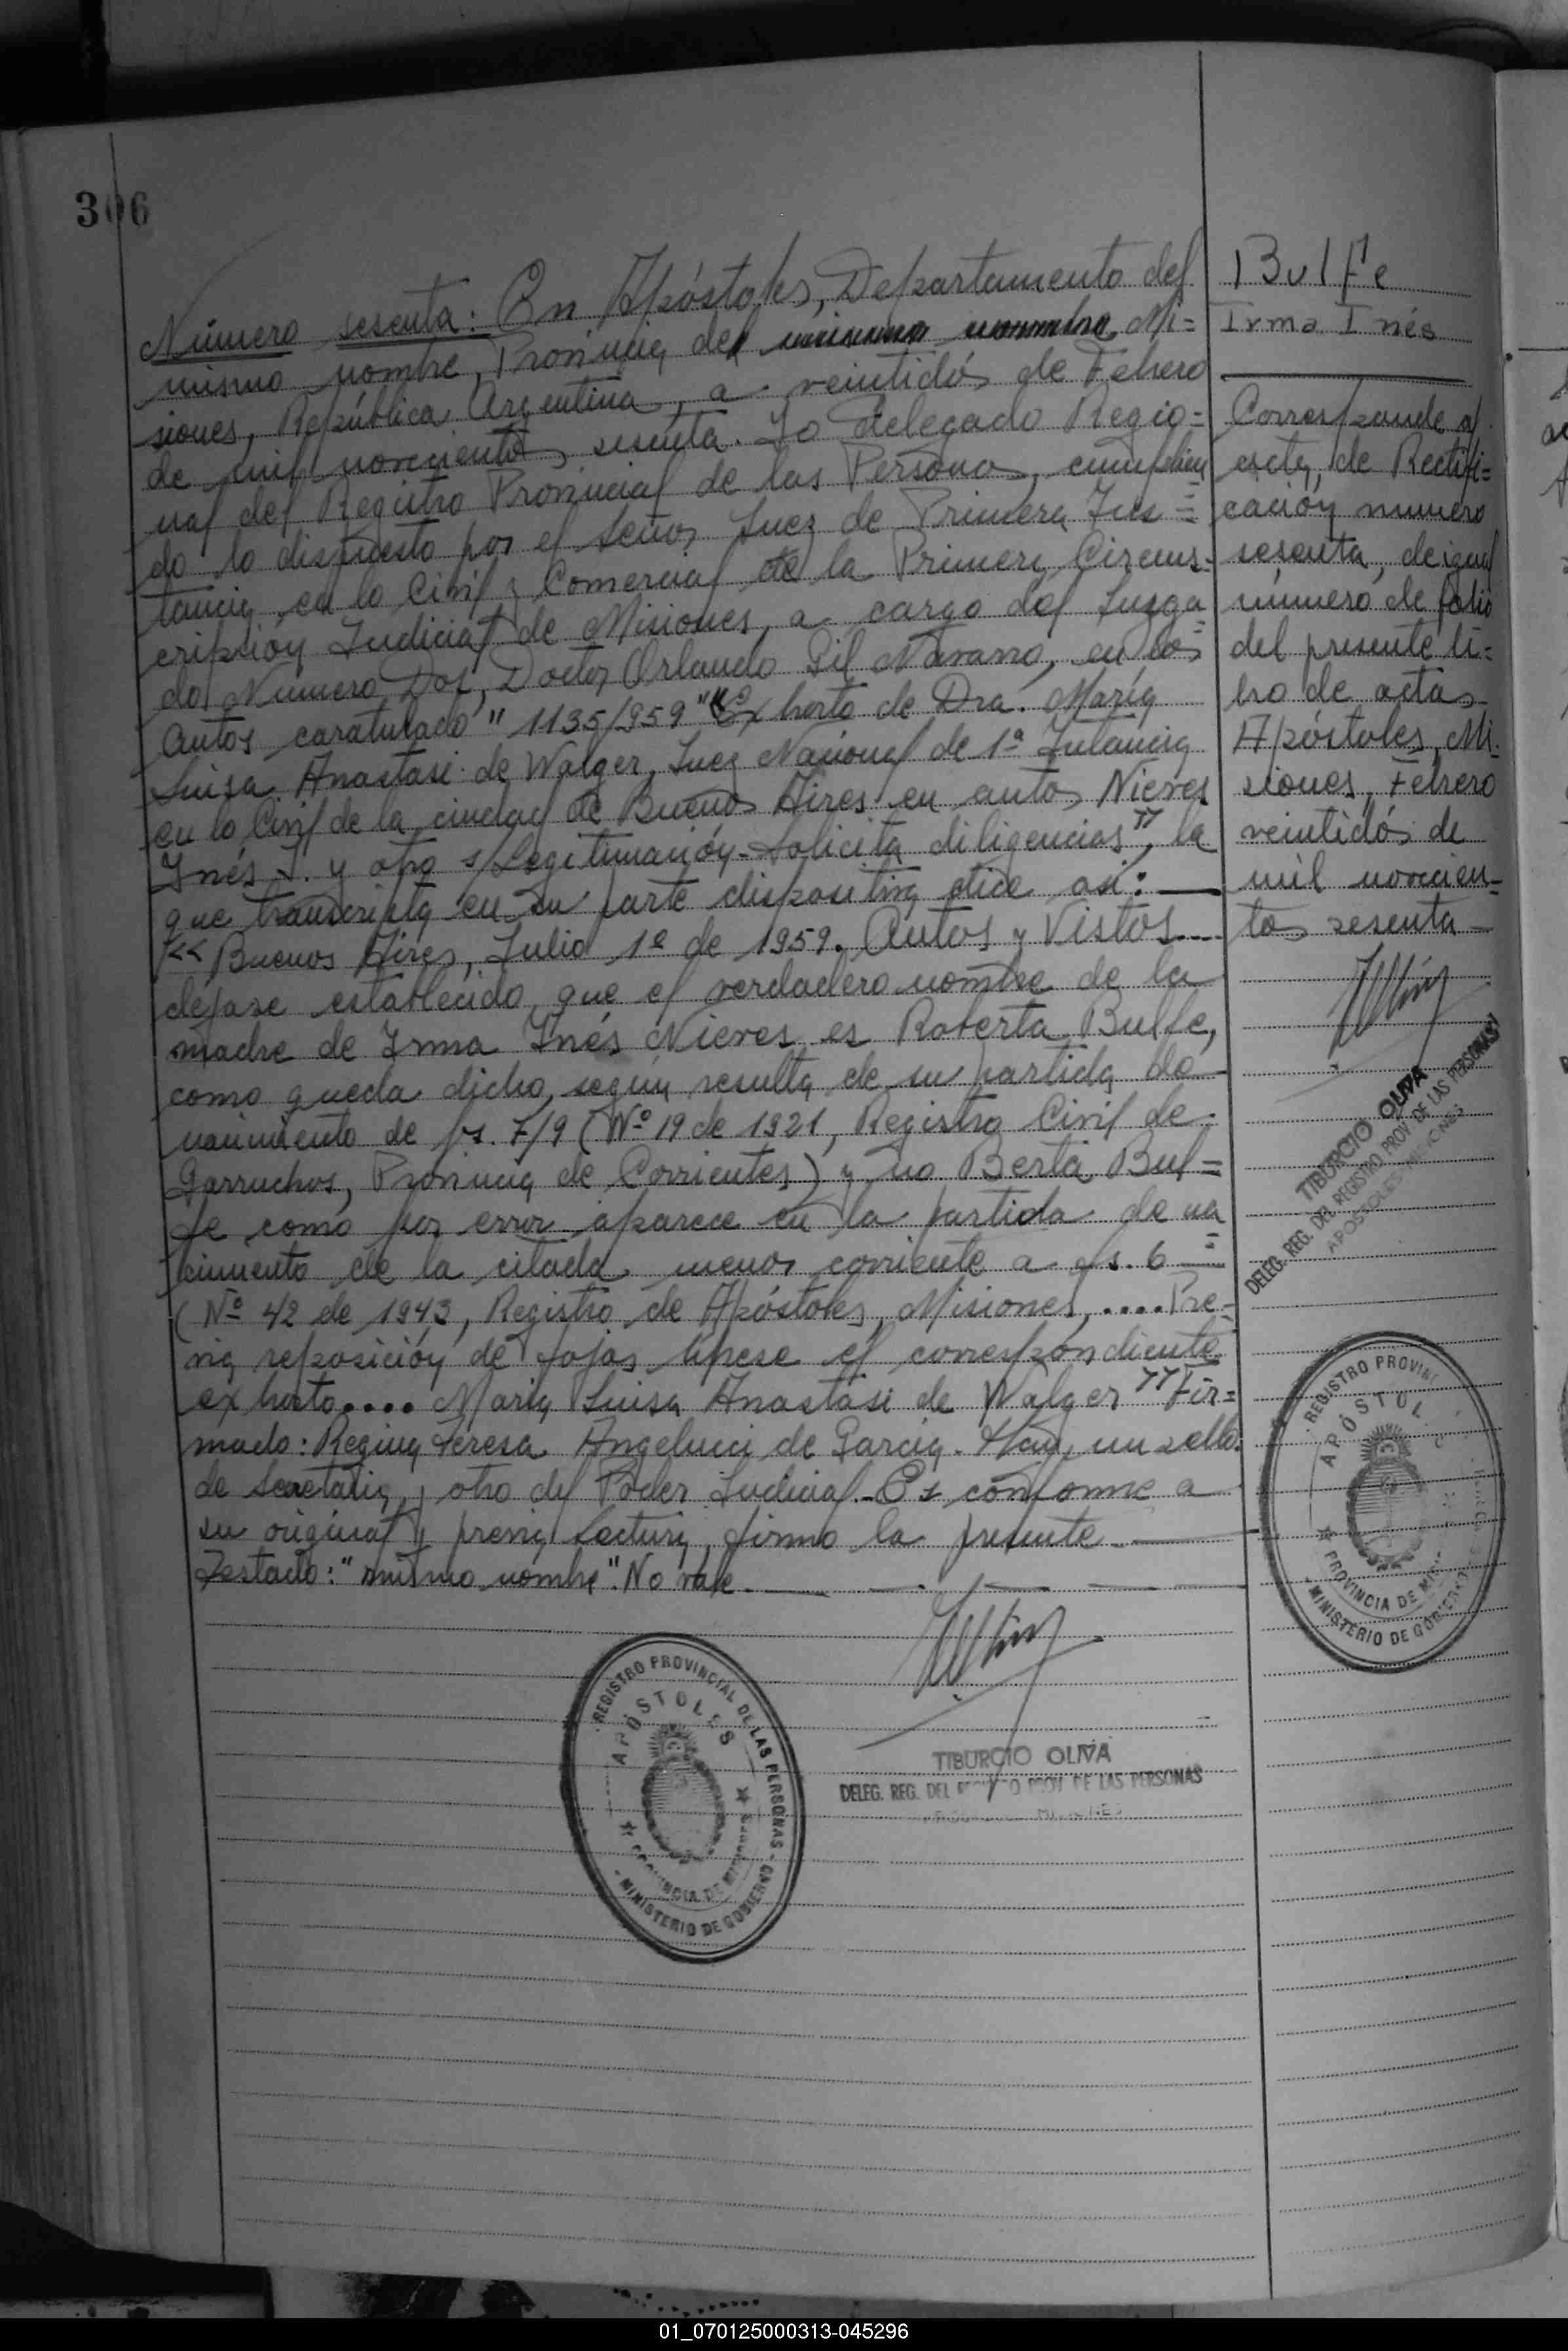 306
Número sesenta: En Apóstoles, Departamento del
mismo nombre, Provincia del mismo nombre Mi=
siones, República Argentina, a veintidós de Febrero
de mil novecientos sesenta. Yo delegado Regio=
nal del Registro Provincial de las Personas, cumplien
do lo dispuesto por el Señor Juez de Primera Ins=
tancia en lo Civil y Comercial de la Primera Circuns-
cripción Judicial de Misiones, a cargo del Juzga=
do Número Dos, Doctor Orlando Gil Navarro, en los
Autos caratulado "1135/959" Exhorto de Dra. María
Luisa Anastasi de Walger, Juez Nacional de 1ª Intancia
en lo Civil de la ciudad de Buenos Aires en autos Nieves
Inés I. y otro s/Legitimación-Solicita diligencias", la
que transcripta en su parte dispositiva dice así:
<<Buenos Aires, Julio 1º de 1959. Autos y Vistos....
déjase establecido que el verdadero nombre de la
madre de Irma Inés Nieves es Roberta Bulfe,
como queda dicho según resulta de su partida de
nacimiento de fs. 7/9 (Nº 19 de 1921, Registro Civil de
Garruchos, Provincia de Corrientes) y no Berta Bul=
fe como por error aparece en la partida de na
cimiento de la citada menor corriente a fs. 6
(Nº 42 de 1943, Registro de Apóstoles, Misiones,.... Pre=
via reposición de fojas líbrese el correspondiente
exhorto.... María Luisa Anastasi de Walger" Fir=
mado: Regina Teresa Angelucci de García. Hay un sello
de Secretaría y otro del Poder Judicial.-Es conforme a
su original y previa lectura, firmo la presente
Testado: "mismo nombre". No vale.
REGISTRO PROVINCIAL DE LAS PERSONAS
APÓSTOLES
PROVINCIA DE
MINISTERIO DE GOBIERNO
TIBURCIO OLIVA
DELEG. REG. DEL REGISTRO PROV. DE LAS PERSONAS
MISIONES
Bulfe
Irma Inés
Corresponde al
acta de Rectifi=
cación número
sesenta, de igual
número de folio
del presente li=
bro de actas
Apóstoles, Mi-
siones, Febrero
veintidós de
mil novecien=
tos sesenta
TIBURCIO OLIVA
DELEG. REG. DEL REGISTRO PROV. DE LAS PERSONAS
APOSTOLES MISIONES
REGISTRO PROVINC
APÓSTOL
PROVINCIA DE MI
MINISTERIO DE GOBIERNO
01_070125000313-045296